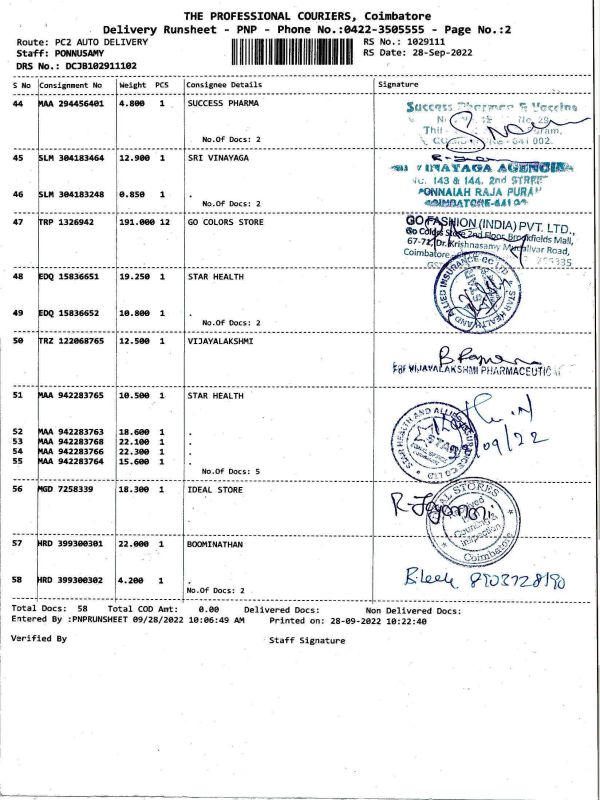 THE PROFESSIONAL COURIERS, Coimbatore
Delivery Runsheet - PNP - Phone No.:0422-3505555 - Page No.:2
Route: PC2 AUTO DELIVERY RS No.: 1029111
Staff: PONNUSAMY RS Date: 28-Sep-2022
DRS No.: DCJB102911102
S No Consignment No Weight PCS Consignee Details Signature
44 MAA 294456401 4.800 1 SUCCESS PHARMA
Success Pharma & Vaccine
No.Of Docs: 2
45 SLM 304183464 12.900 1 SRI VINAYAGA
VINAYAGA AGENCIES
No. 143 & 144, 2nd STREET
46 SLM 304183248 0.850 1 .
PONNAIAH RAJA PURAM
No.Of Docs: 2
COIMBATORE-641 01
47 TRP 1326942 191.000 12 GO COLORS STORE
GO FASHION (INDIA) PVT. LTD.,
Go Colors Store 2nd Floor, Brookfields Mall,
67-71, Dr.Krishnasamy Mudaliyar Road,
Coimbatore
48 EDQ 15836651 19.250 1 STAR HEALTH
STAR HEALTH AND ALLIED INSURANCE CO LTD
49 EDQ 15836652 10.800 1 .
No.Of Docs: 2
50 TRZ 122068765 12.500 1 VIJAYALAKSHMI
For VIJAYALAKSHMI PHARMACEUTIC
51 MAA 942283765 10.500 1 STAR HEALTH
STAR HEALTH AND ALLIED INSURANCE CO LTD
STAR
09/22
52 MAA 942283763 18.600 1 .
53 MAA 942283768 22.100 1 .
54 MAA 942283766 22.300 1 .
55 MAA 942283764 15.600 1 .
No.Of Docs: 5
56 MGD 7258339 18.300 1 IDEAL STORE
STORES
Coimbatore
57 HRD 399300301 22.000 1 BOOMINATHAN
58 HRD 399300302 4.200 1 .
No.Of Docs: 2
Total Docs: 58 Total COD Amt: 0.00 Delivered Docs: Non Delivered Docs:
Entered By :PNPRUNSHEET 09/28/2022 10:06:49 AM Printed on: 28-09-2022 10:22:40
Verified By Staff Signature